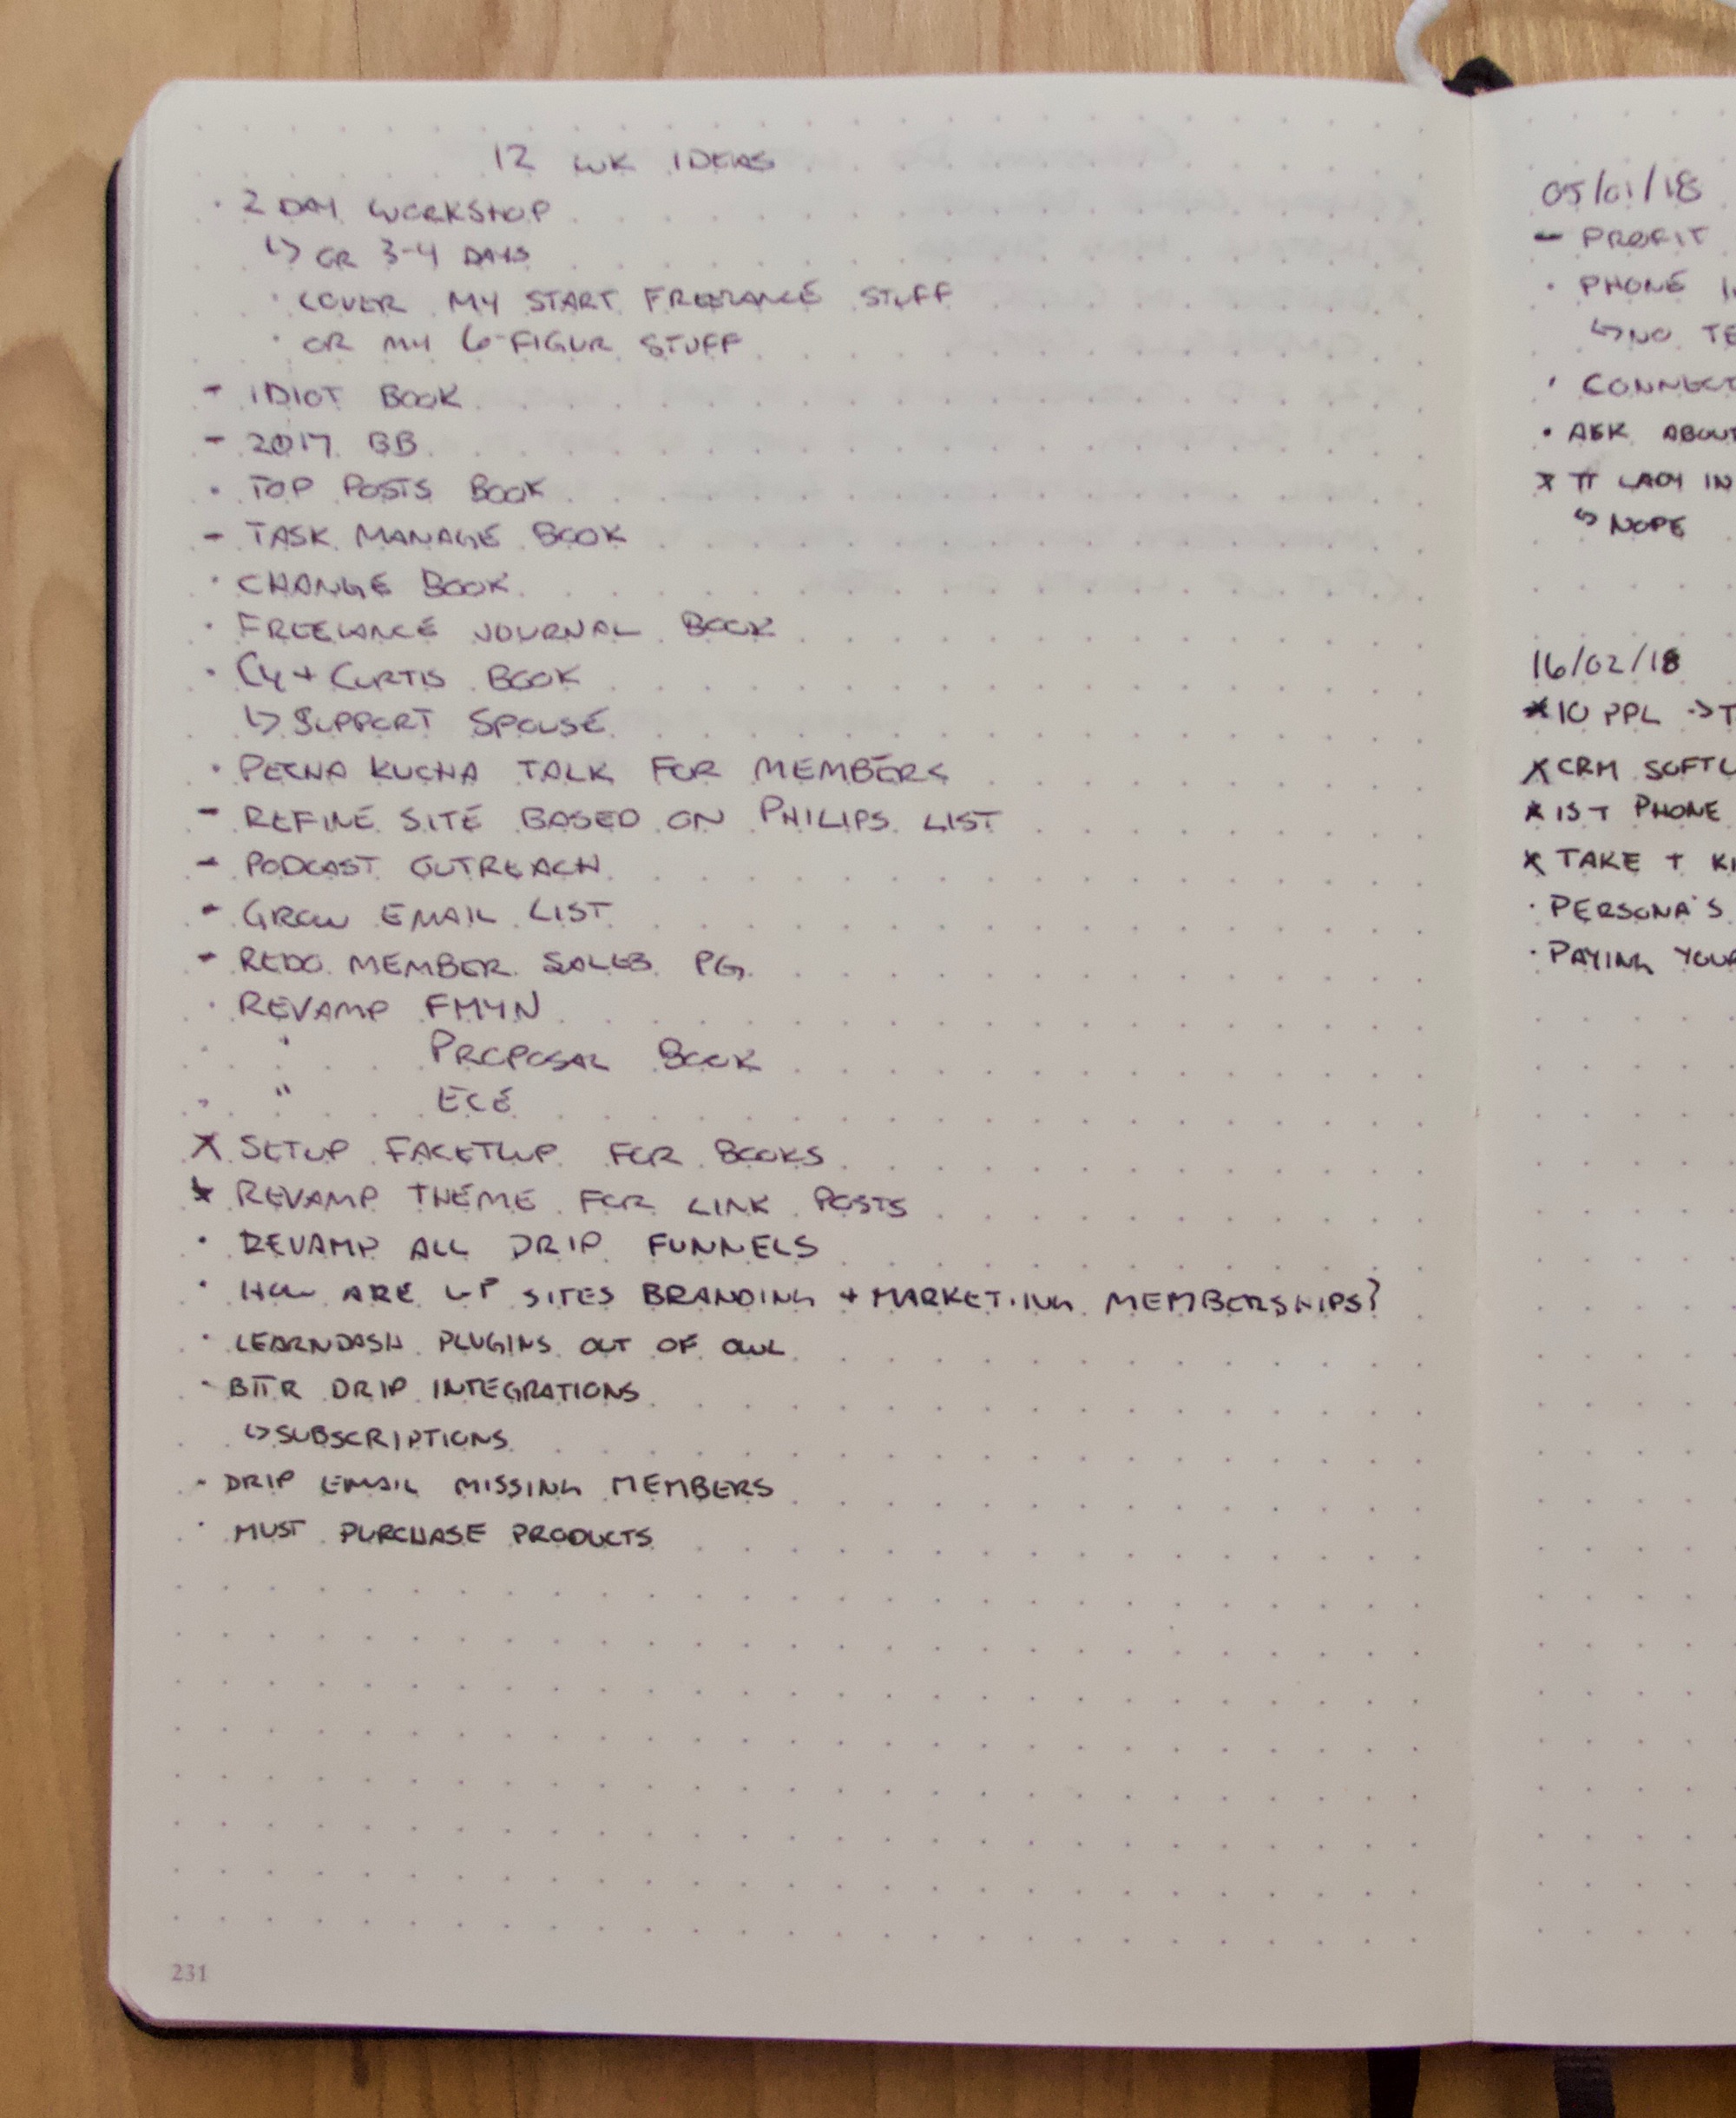 12 WK IDEAS
· 2 DAY WORKSHOP
↳ OR 3-4 DAYS
· COVER MY START FREELANCE STUFF
· OR MY 6-FIGUR STUFF
- IDIOT BOOK
- 2017 BB
· TOP POSTS BOOK
- TASK MANAGE BOOK
· CHANGE BOOK
· FREELANCE JOURNAL BOOK
· CY + CURTIS BOOK
↳ SUPPORT SPOUSE
· PECHA KUCHA TALK FOR MEMBERS
- REFINE SITE BASED ON PHILIPS LIST
- PODCAST OUTREACH
- GROW EMAIL LIST
- REDO MEMBER SALES PG
· REVAMP FMYN
· " PROPOSAL BOOK
· " ECE
X SETUP FACETWP FOR BOOKS
X REVAMP THEME FOR LINK POSTS
· REVAMP ALL DRIP FUNNELS
· HOW ARE WP SITES BRANDING + MARKETING MEMBERSHIPS?
· LEARNDASH PLUGINS OUT OF
· BTTR DRIP INTEGRATIONS
↳ SUBSCRIPTIONS
- DRIP EMAIL MISSING MEMBERS
· MUST PURCHASE PRODUCTS
231
05/01/18
- PROFIT
· PHONE
↳ NO TE
· CONNECT
· ASK ABOUT
X TT LADY IN
↳ NOPE
16/02/18
X 10 PPL -> T
X CRM SOFTW
X 1ST PHONE
X TAKE T KI
· PERSONA'S
· PAYING YOUR